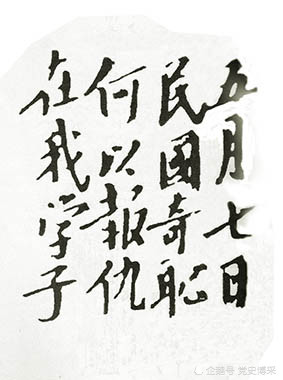 五月七日
民國奇恥
何以報仇
在我学子
企鹅号 党史博采